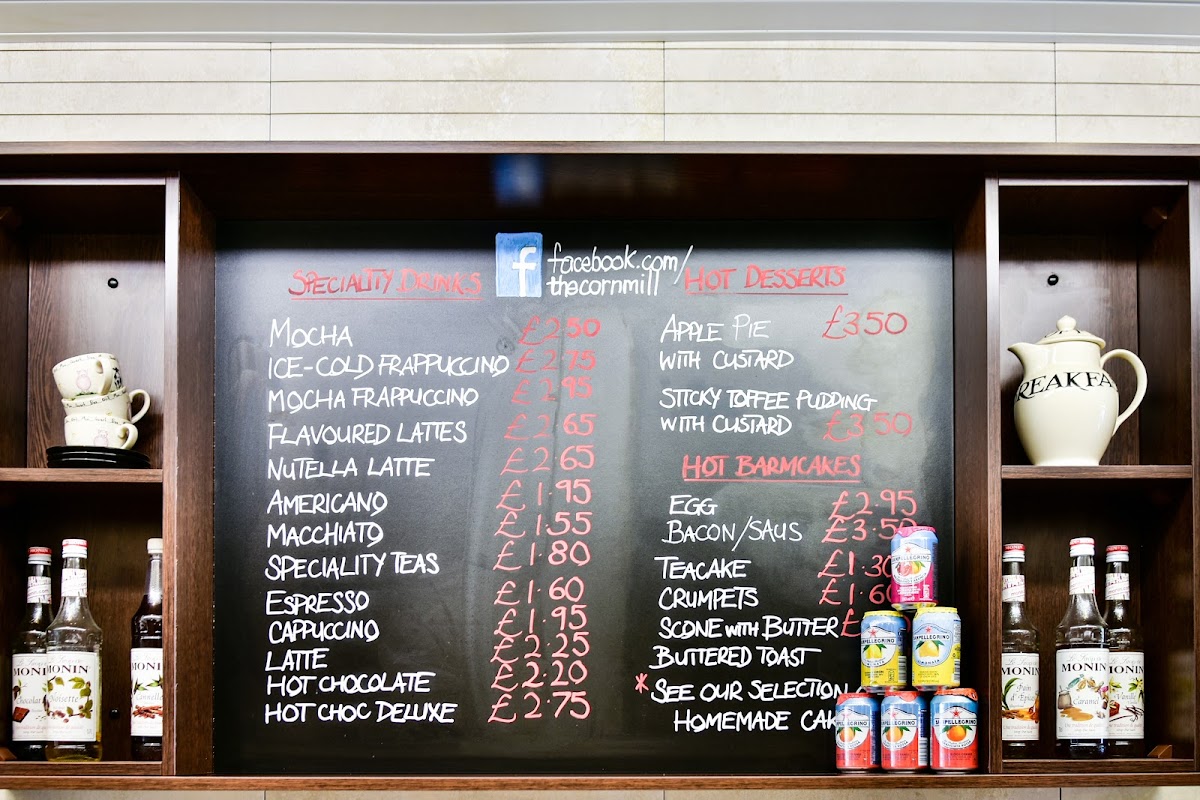 facebook.com/
thecornmill
SPECIALITY DRINKS
MOCHA £2.50
ICE-COLD FRAPPUCCINO £2.75
MOCHA FRAPPUCCINO £2.95
FLAVOURED LATTES £2.65
NUTELLA LATTE £2.65
AMERICANO £1.95
MACCHIATO £1.55
SPECIALITY TEAS £1.80
ESPRESSO £1.60
CAPPUCCINO £1.95
LATTE £2.25
HOT CHOCOLATE £2.20
HOT CHOC DELUXE £2.75
HOT DESSERTS
APPLE PIE £3.50
WITH CUSTARD
STICKY TOFFEE PUDDING
WITH CUSTARD £3.50
HOT BARMCAKES
EGG £2.95
BACON/SAUS £3.50
TEACAKE £1.30
CRUMPETS £1.60
SCONE WITH BUTTER £
BUTTERED TOAST
*SEE OUR SELECTION
HOMEMADE CAK
REAKFA
MONIN
Chocolat
MONIN
Noisette
MONIN
Cannelle
MONIN
Pain
d'Epices
MONIN
Caramel
MONIN
Vanille
PELLEGRINO
PELLEGRINO
PELLEGRINO
PELLEGRINO
PELLEGRINO
PELLEGRINO